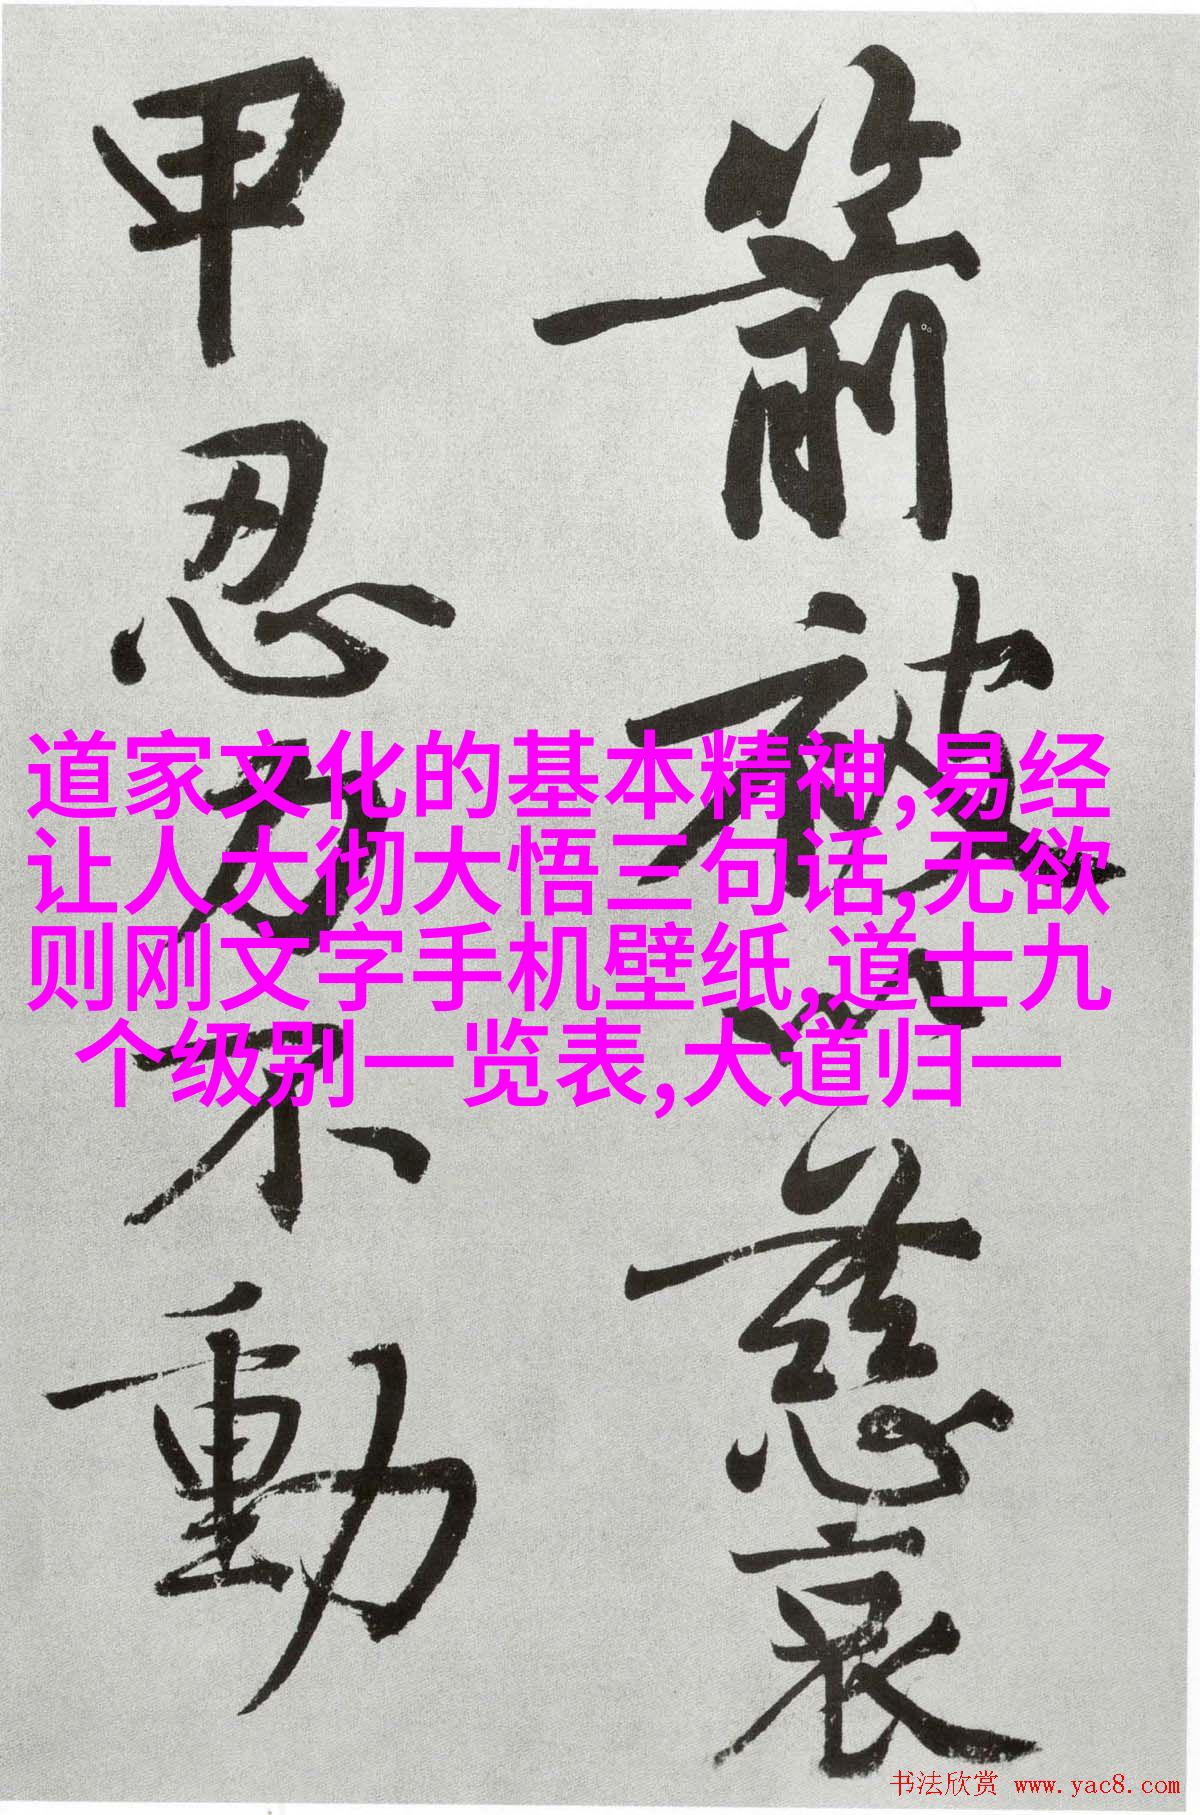 箭被以慈哀
甲忍力不動
道家文化的基本精神,易经
让人大彻大悟三句话,无欲
则刚文字手机壁纸,道士九
个级别一览表,大道归一
书法欣赏 www.yac8.com